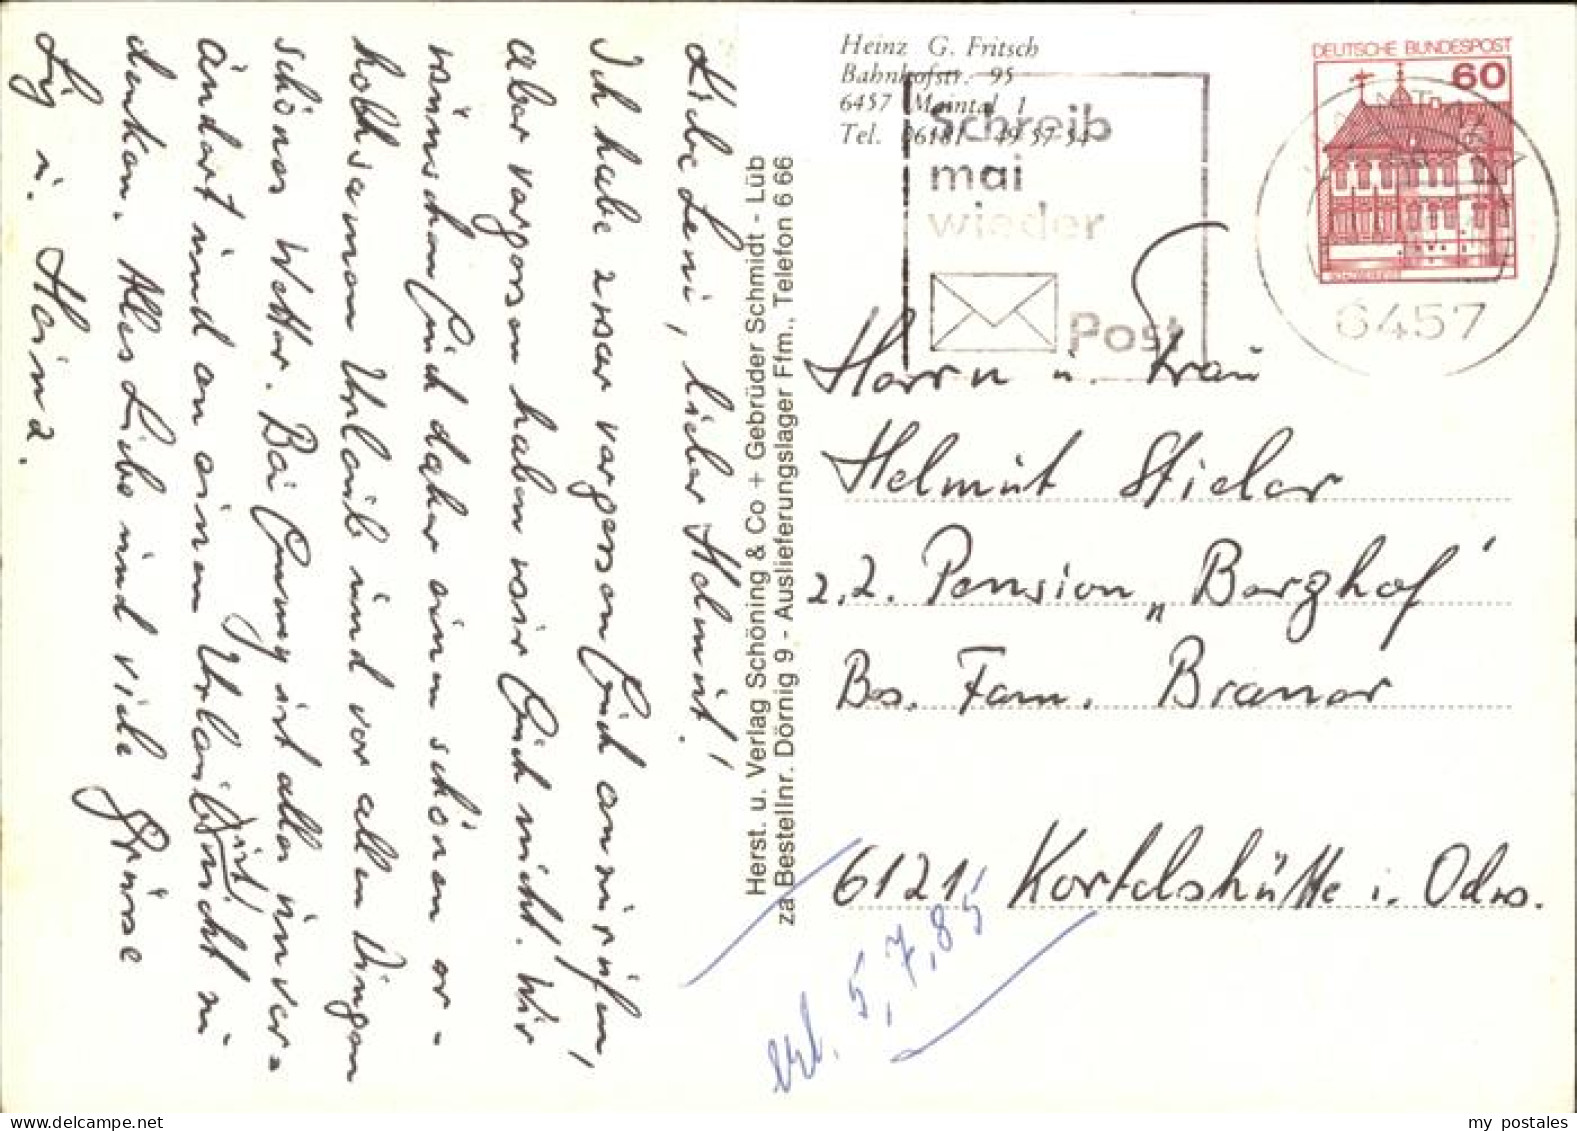 Liebe Leni, lieber Helmut!
Ich habe zwar vergessen Euch anzurufen,
aber vergessen haben wir Euch nicht. Wir
wünschen Euch daher einen schönen er-
holsamen Urlaub und vor allen Dingen
schönes Wetter. Bei Conny ist alles unver-
ändert und an einen Urlaub ist nicht zu
denken. Alles Liebe und viele Grüsse
Lig u. Heinz.
Heinz G. Fritsch
Bahnhofstr. 95
6457 Maintal 1
Tel. 06181 - 49 57 54
Schreib
mal
wieder
Post
DEUTSCHE BUNDESPOST
60
6457
Herst. u. Verlag Schöning & Co + Gebrüder Schmidt - Lüb
za Bestellnr. Dörnig 9 - Auslieferungslager Ffm., Telefon 6 66
Herrn u. Frau
Helmut Stieler
z.Z. Pension „Berghof"
Bes. Fam. Brenner
6121 Kortelshütte i. Odw.
erl. 5.7.85
my postales